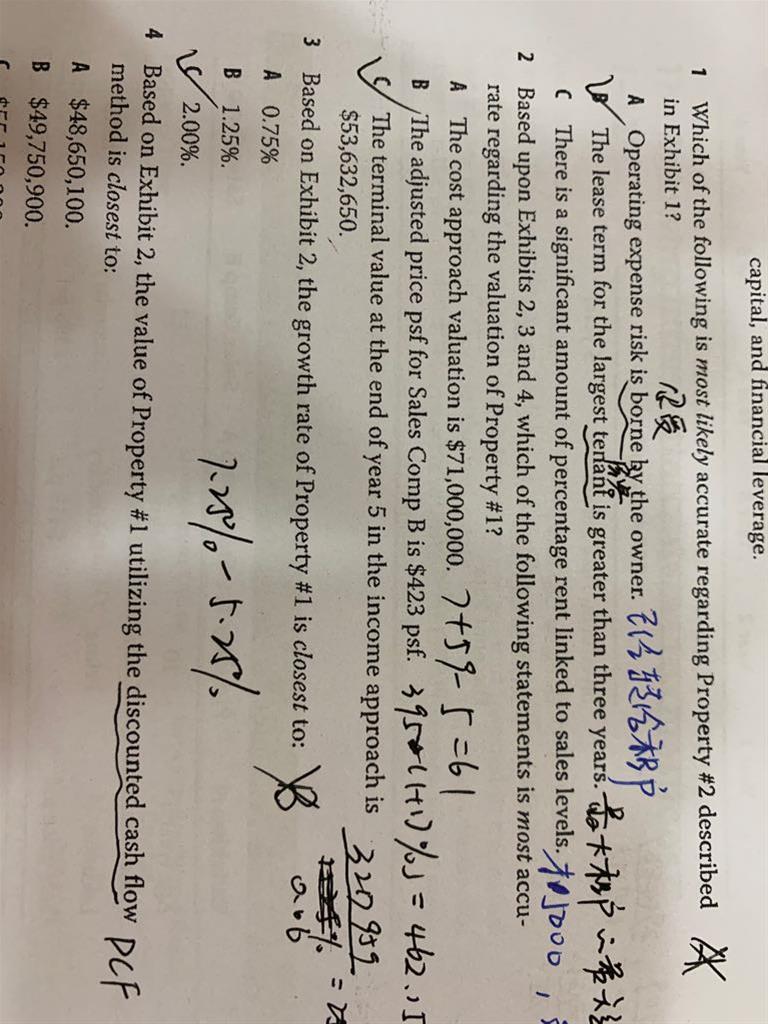 capital, and financial leverage.
1 Which of the following is most likely accurate regarding Property #2 described
in Exhibit 1?
A Operating expense risk is borne by the owner.
承受
B The lease term for the largest tenant is greater than three years.
C There is a significant amount of percentage rent linked to sales levels.
2 Based upon Exhibits 2, 3 and 4, which of the following statements is most accu-
rate regarding the valuation of Property #1?
A The cost approach valuation is $71,000,000. 7+59-5=61
B The adjusted price psf for Sales Comp B is $423 psf.
C The terminal value at the end of year 5 in the income approach is
$53,632,650.
3 Based on Exhibit 2, the growth rate of Property #1 is closest to:
A 0.75%
B 1.25%.
C 2.00%.
7.25% - 5.25%
4 Based on Exhibit 2, the value of Property #1 utilizing the discounted cash flow DCF
method is closest to:
A $48,650,100.
B $49,750,900.